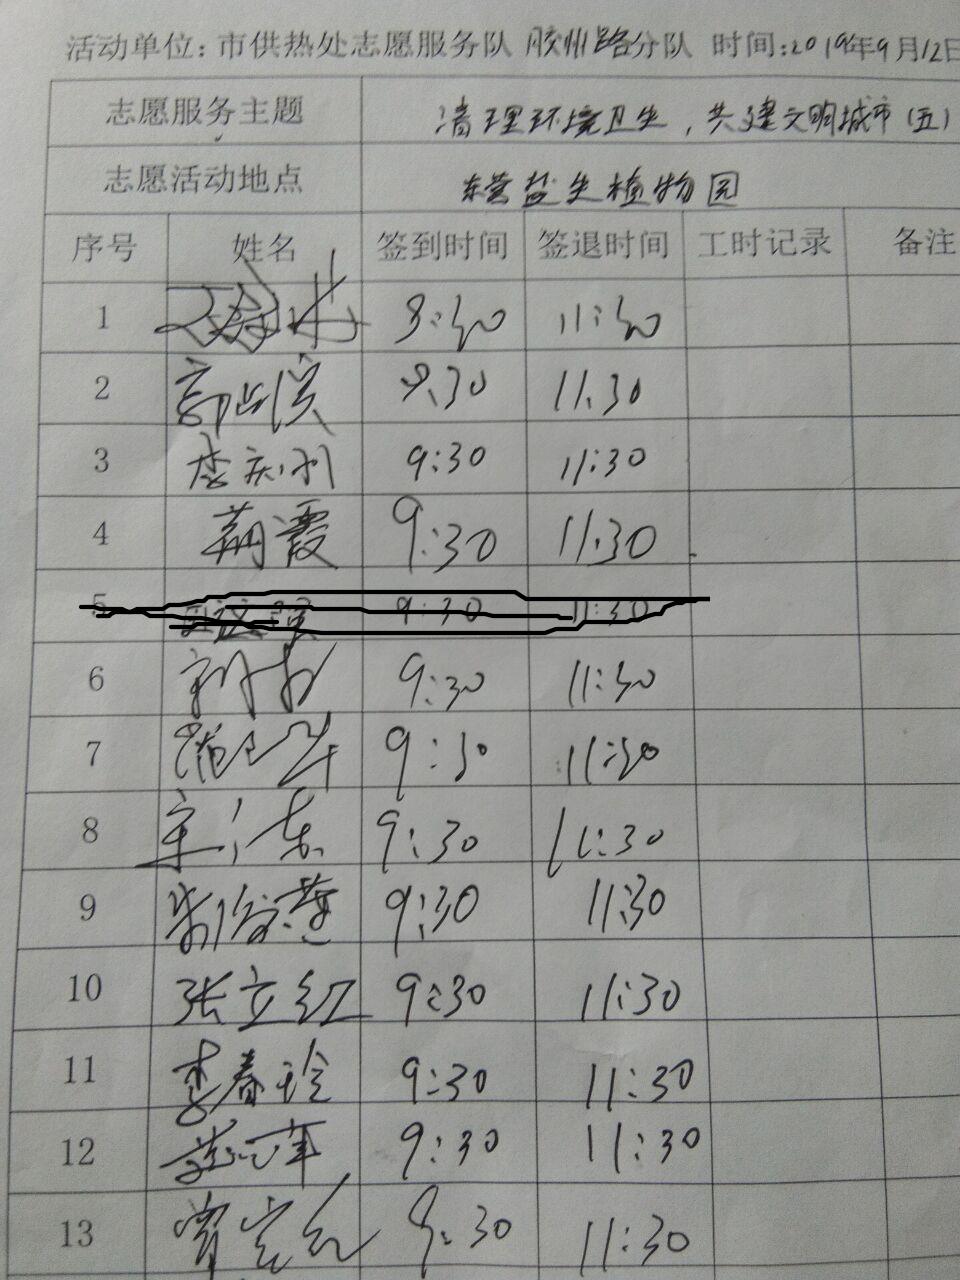 活动单位:市供热处志愿服务队 胶州路分队 时间:2019年9月12日
志愿服务主题 清理环境卫生,共建文明城市(五)
志愿活动地点 东营盐生植物园
序号 姓名 签到时间 签退时间 工时记录 备注
1 9:30 11:30
2 9:30 11:30
3 李庆利 9:30 11:30
4 荆霞 9:30 11:30
5 9:30 11:30
6 9:30 11:30
7 9:30 11:30
8 9:30 11:30
9 9:30 11:30
10 张立红 9:30 11:30
11 李春玲 9:30 11:30
12 9:30 11:30
13 9:30 11:30